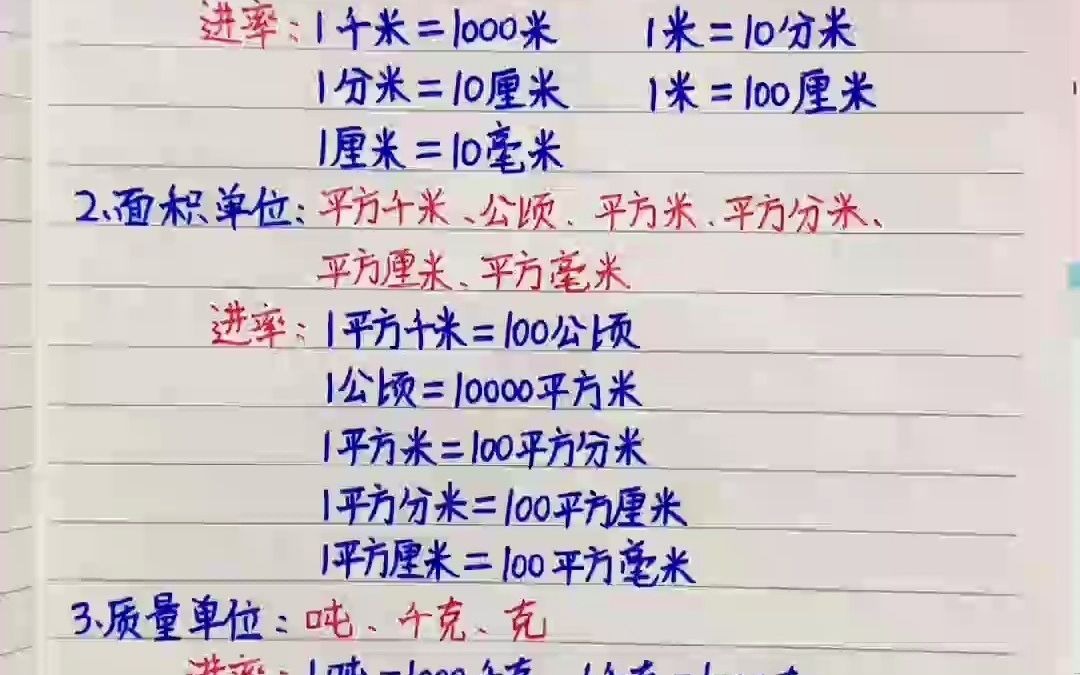 进率：1千米=1000米 1米=10分米
1分米=10厘米 1米=100厘米
1厘米=10毫米
2、面积单位：平方千米、公顷、平方米、平方分米、
平方厘米、平方毫米
进率：1平方千米=100公顷
1公顷=10000平方米
1平方米=100平方分米
1平方分米=100平方厘米
1平方厘米=100平方毫米
3、质量单位：吨、千克、克
进率：1吨=1000千克